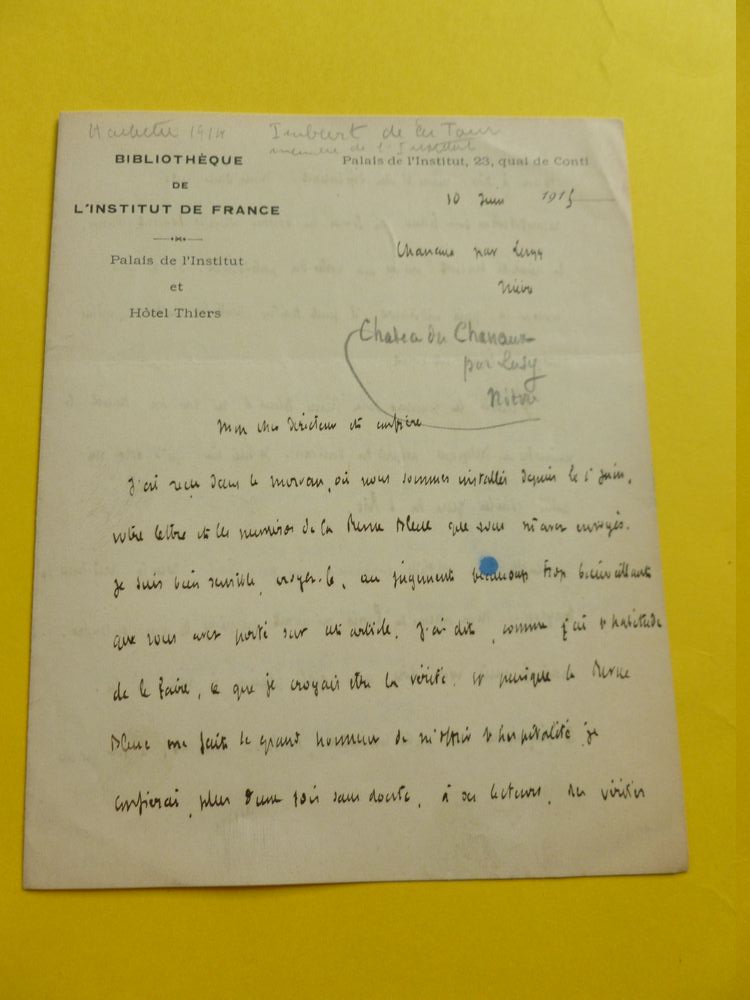 Hachette 1914 Imbart de la Tour
membre de l'Institut
BIBLIOTHÈQUE
DE
L'INSTITUT DE FRANCE
Palais de l'Institut
et
Hôtel Thiers
Palais de l'Institut, 23, quai de Conti
10 Juin 1915
par Luzy
Nièvre
Chateau du
par Luzy
Nièvre
Mon cher Directeur et confrère
J'ai reçu dans le Morvan, où nous sommes installés depuis le 1er Juin,
votre lettre et les numéros de la Revue Bleue que vous m'avez envoyés.
Je suis bien sensible, croyez-le, au jugement beaucoup trop bienveillant
que vous avez porté sur cet article. J'ai dit, comme j'ai l'habitude
de le faire, ce que je croyais être la vérité. et puisque la Revue
Bleue me fait le grand honneur de m'offrir l'hospitalité je
confierai, plus d'une fois sans doute, à ses lecteurs, des vérités